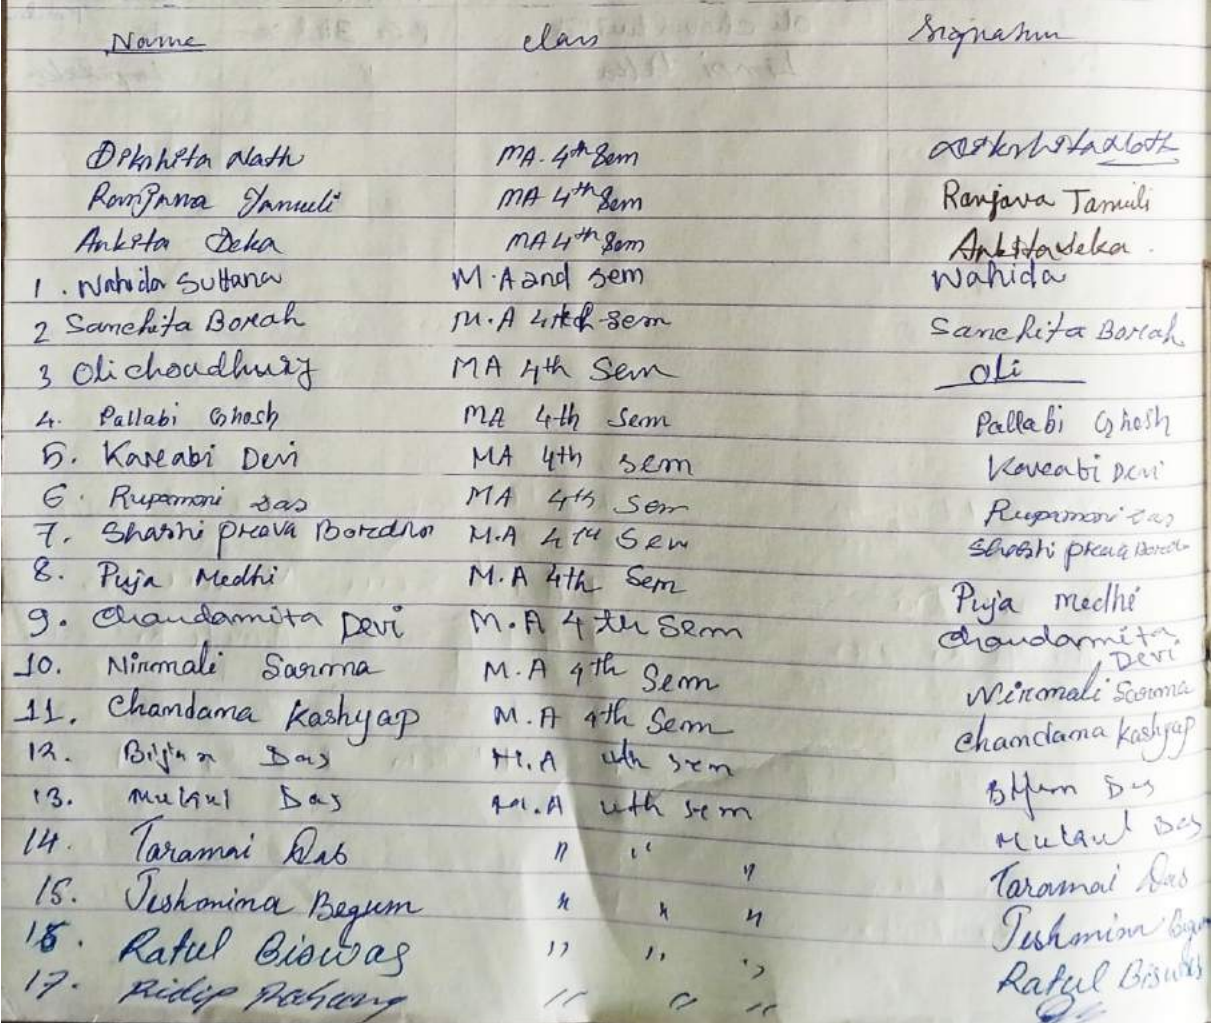 Name class Signature
Dikshita Nath MA. 4th Sem Dikshita Nath
Ranjana Tamuli MA 4th Sem Ranjana Tamuli
Ankita Deka MA 4th Sem Ankita Deka
1. Wahida Sultana M.A 2nd sem Wahida
2 Sanchita Borah M.A 4th sem Sanchita Borah
3 Oli choudhury MA 4th Sem Oli
4. Pallabi Ghosh MA 4th Sem Pallabi Ghosh
5. Devi MA 4th sem Devi
6. Rupamoni Das MA 4th Sem Rupamoni Das
7. Shashi preava M.A 4th Sem Shashi preava
8. Puja Medhi M.A 4th Sem Puja medhi
9. Chandamita Devi M.A 4th Sem Chandamita
Devi
10. Nirmali Sarma M.A 4th Sem Nirmali Sarma
11. Chandama Kashyap M.A 4th Sem Chandama Kashyap
12. Das M.A 4th sem Das
13. Das M.A 4th sem Das
14. Taramai Das " " " Taramai Das
15. Jeshmina Begum " " " Jeshmina Begum
16. Ratul Biswas " " " Ratul Biswas
17. Ridip " " "